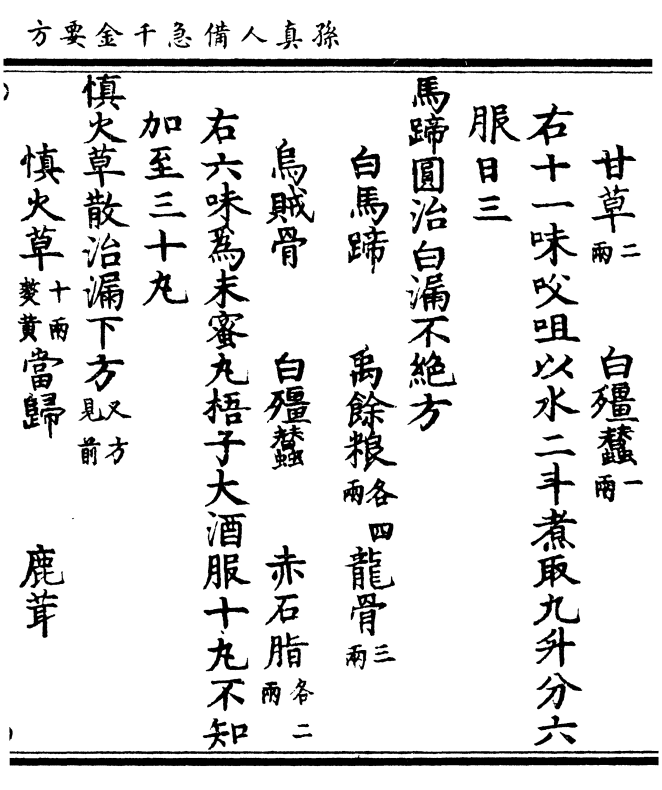 孫真人備急千金要方
甘草二兩 白殭蠶一兩
右十一味㕮咀以水二斗煮取九升分六
服日三
馬蹄圓治白漏不絕方
白馬蹄 禹餘粮各四兩 龍骨三兩
烏賊骨 白殭蠶 赤石脂各二兩
右六味為末蜜丸梧子大酒服十丸不知
加至三十丸
慎火草散治漏下方又方見前
慎火草十兩熬黄 當歸 鹿茸